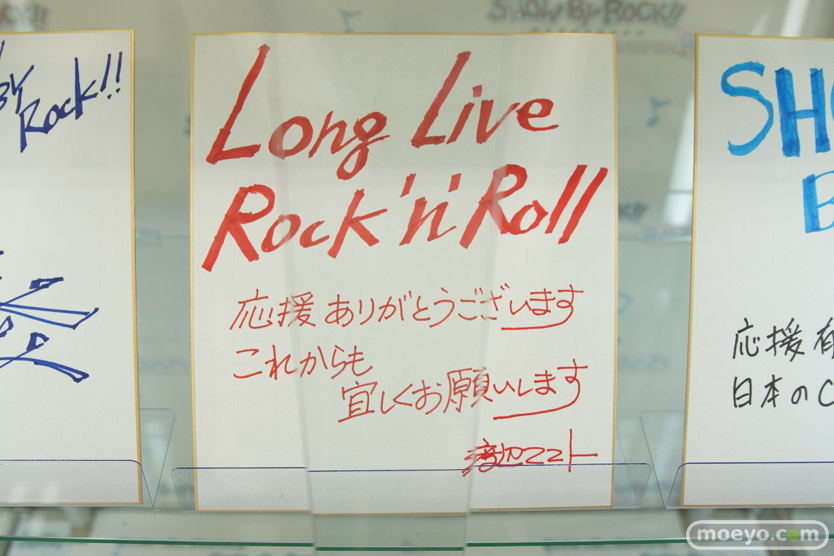 SHOW BY ROCK!!
BY
Rock!!
Long Live
Rock 'n' Roll
応援ありがとうございます
これからも
宜しくお願いします
渡辺マコト
SHO
B
応援有
日本のC
moeyo.com